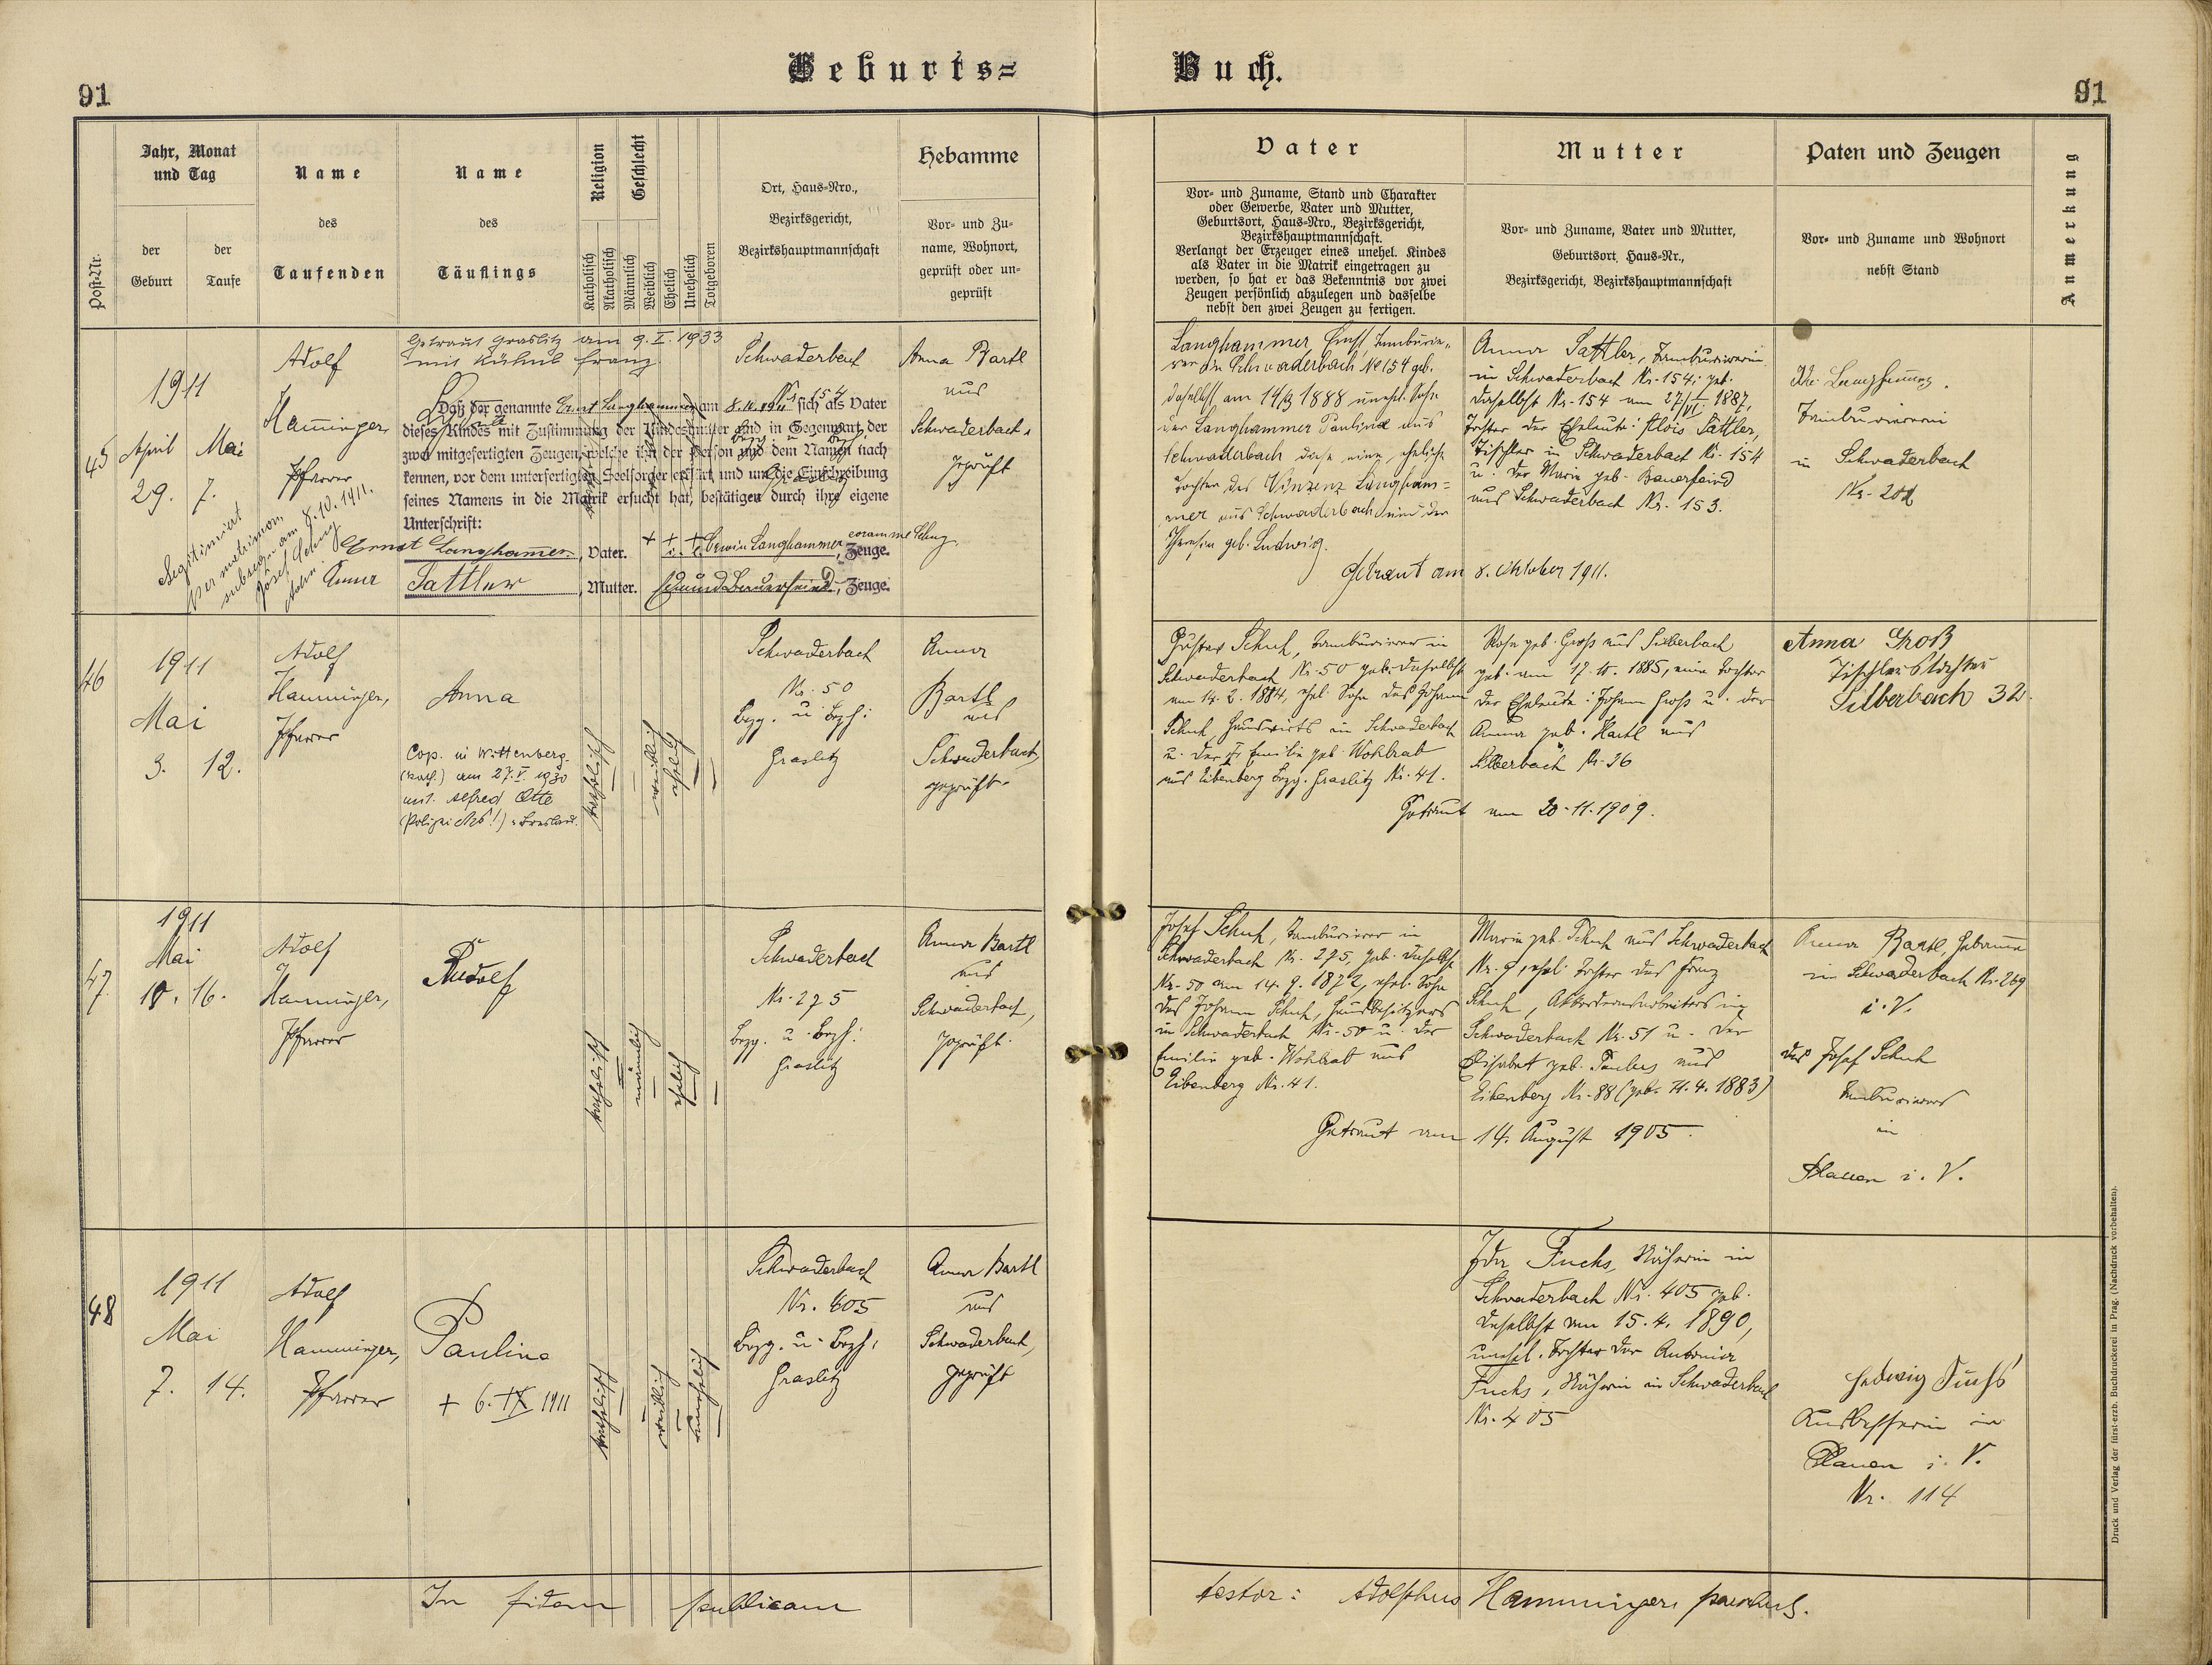 Geburts= Buch.
91
91
Post-Nr.
Jahr, Monat
und Tag
der
Geburt
der
Taufe
Name
des
Taufenden
Name
des
Täuflings
Religion
Katholisch
Akatholisch
Geschlecht
Männlich
Weiblich
Ehelich
Unehelich
Totgeboren
Ort, Haus-Nro.,
Bezirksgericht,
Bezirkshauptmannschaft
Hebamme
Vor- und Zu-
name, Wohnort,
geprüft oder un-
geprüft
Vater
Vor- und Zuname, Stand und Charakter
oder Gewerbe, Vater und Mutter,
Geburtsort, Haus-Nro., Bezirksgericht,
Bezirkshauptmannschaft.
Verlangt der Erzeuger eines unehel. Kindes
als Vater in die Matrik eingetragen zu
werden, so hat er das Bekenntnis vor zwei
Zeugen persönlich abzulegen und dasselbe
nebst den zwei Zeugen zu fertigen.
Mutter
Vor- und Zuname, Vater und Mutter,
Geburtsort, Haus-Nr.,
Bezirksgericht, Bezirkshauptmannschaft
Paten und Zeugen
Vor- und Zuname und Wohnort
nebst Stand
Anmerkung
45
1911
April Mai
29. 7.
Adolf
Hamminger
Pfarrer
Legitimiert
per matrimon.
subsequ. am 8.10.1911.
Getraut Graslitz am 9.I.1933
mit Kühnl Franz.
Daß der genannte Ernst Langhammer am 8.10.1911 sich als Vater
dieses Kindes mit Zustimmung der Kindesmutter und in Gegenwart der
zwei mitgefertigten Zeugen, welche ihn der Person und dem Namen nach
kennen, vor dem unterfertigten Seelsorger erklärt und um die Einschreibung
seines Namens in die Matrik ersucht hat, bestätigen durch ihre eigene
Unterschrift:
Ernst Langhammer, Vater. Erwin Langhammer, Zeuge.
Anna Sattler, Mutter. Edmund Bauerfeind, Zeuge.
Schwaderbach
Nr. 154
Anna Bartl
aus
Schwaderbach,
geprüft
Langhammer, Ernst, Tambürie-
rer in Schwaderbach No 154 geb.
daselbst, am 14/9 1888 unehl. Sohn
der Langhammer Paulina aus
Schwaderbach diese eine, eheliche
Tochter des Vinzenz Langham=
mer aus Schwaderbach und der
Theresia geb. Ludwig.
Anna Sattler, Tamburiererin
in Schwaderbach Nr. 154; geb.
daselbst Nr. 154 am 27/VI 1887,
Tochter der Eheleute: Alois Sattler,
Tischler in Schwaderbach Nr. 154
u. der Marie geb. Bauerfeind
aus Schwaderbach Nr. 153.
Getraut am 8. Oktober 1911.
Langhammer.
Tamburiererin
in Schwaderbach
46
1911
Mai
3. 12.
Adolf
Hamminger,
Pfarrer
Anna
Cop. in Wittenberg
(kath.) am 27.V. 1930
mit Alfred Otte
katholisch
weiblich
ehelich
Schwaderbach
Nr. 50
Bzg. u. Bzh:
Graslitz
Anna
Bartl
aus
Schwaderbach,
geprüft.
Gustav Schuh, Tamburierer in
Schwaderbach Nr. 50 geb. daselbst
am 14.2.1884, ehel. Sohn des Johann
Schuh, Hauswirts in Schwaderbach
u. der Emilie geb. Wohlrab
aus Eibenberg Bzg. Graslitz Nr. 41.
Rosa geb. Groß aus Silberbach
geb. am 17.10.1885, eine Tochter
der Eheleute: Johann Groß u. der
Anna geb. Hartl aus
Silberbach Nr. 36
Getraut am 20.11.1909.
Anna Groß
Tischlerstochter
Silberbach 32.
47
1911
Mai
10. 16.
Adolf
Hamminger,
Pfarrer
Rudolf
katholisch
männlich
ehelich
Schwaderbach
Nr. 275
Bzg. u. Bzh:
Graslitz
Anna Bartl
aus
Schwaderbach,
geprüft.
Josef Schuh, Tamburierer in
Schwaderbach Nr. 275, geb. daselbst
Nr. 50 am 14.9.1872, ehel. Sohn
des Johann Schuh, Hausbesitzers
in Schwaderbach Nr. 50 u. der
Emilie geb. Wohlrab aus
Eibenberg Nr. 41.
Marie geb. Schuh aus Schwaderbach
Nr. 9, ehel. Tochter des Franz
Schuh, Akkordeonarbeiters in
Schwaderbach Nr. 51 u. der
Elisabet geb. Paulus aus
Eibenberg Nr. 88 (geb. 11.4.1883)
Getraut am 14. August 1905.
Anna Bartl, Hebamme
in Schwaderbach Nr. 269
i. V.
des Josef Schuh
Tamburierers
in
Plauen i. V.
48
1911
Mai
7. 14.
Adolf
Hamminger,
Pfarrer
Paulina
+ 6. IX 1911
katholisch
weiblich
unehelich
Schwaderbach
Nr. 405
Bzg. u. Bzh:
Graslitz
Anna Bartl
aus
Schwaderbach,
geprüft
Ida Fuchs, Näherin in
Schwaderbach Nr. 405 geb.
daselbst am 15.4.1890,
unehel. Tochter der Antonia
Fuchs, Näherin in Schwaderbach
Nr. 405
Hedwig Fuchs
Ausbesserin in
Plauen i. V.
Nr. 114
In fidem publicam testor: Adolphus Hamminger, parochus.
Druck und Verlag der fürst-erzb. Buchdruckerei in Prag. (Nachdruck vorbehalten).